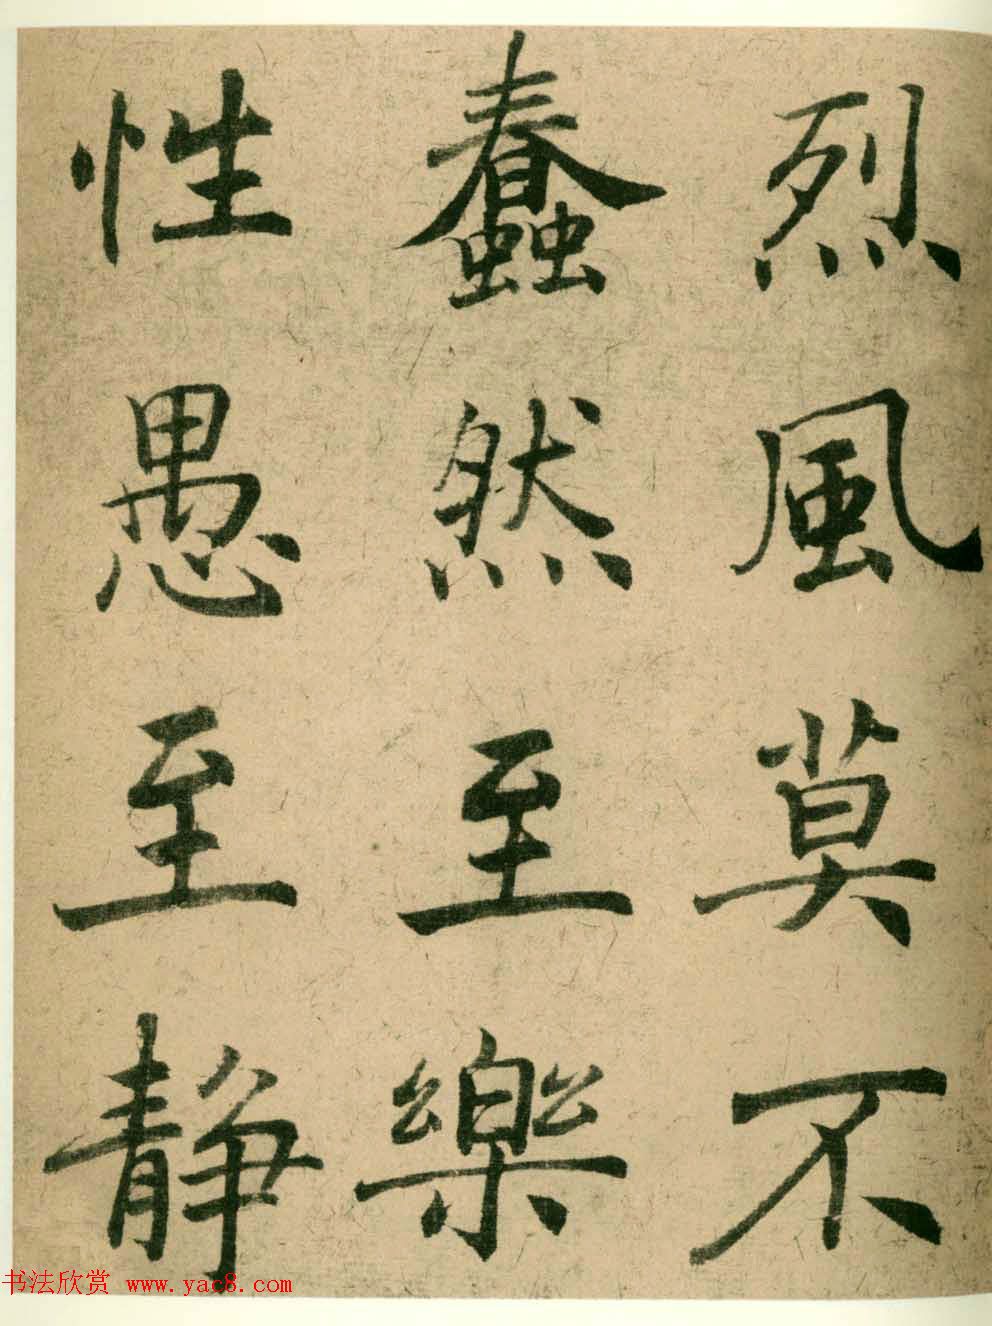 烈風莫不
蠢然至樂
性愚至静
书法欣赏 www.yac8.com